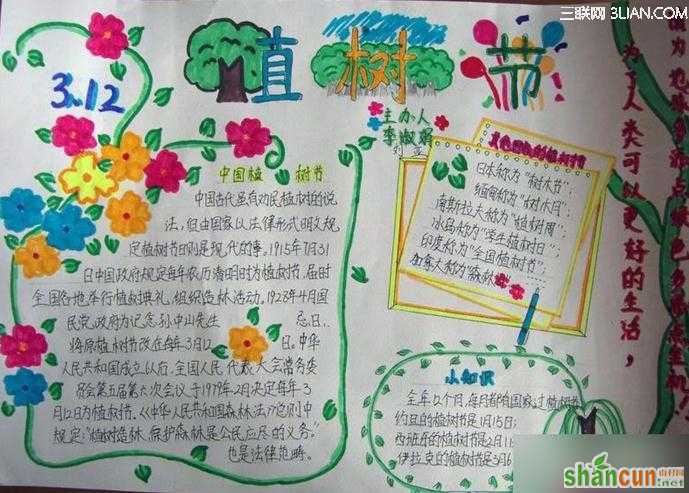 三联网 3LIAN.COM
3.12
植 树 节
主办人
李淑娟
中国植 树节
中国古代虽有劝民植树的说
法,但由国家以法律形式明文规
定植树节日则是现代的事。1915年7月31
日中国政府规定每年农历清明时为植树节,届时
全国各地举行植树典礼,组织造林活动。1928年4月国
民党政府为记念孙中山先生 忌日,
将原植树节改在每年3月12 日。中华
人民共和国成立以后,全国人民代表大会常务委
员会第五届第六次会议于1979年2月决定每年3
月12日为植树节。《中华人民共和国森林法》总则中
规定:"植树造林、保护森林是公民应尽的义务。"
也是法律范畴。
日本称为"树木节";
缅甸称为"树木月";
南斯拉夫称为"植树周";
冰岛称为"学生植树日";
印度称为"全国植树节";
加拿大称为"森林
小知识
全年12个月,每月都有国家过植树节
约旦的植树节是1月15日;
西班牙的植树节是2月1
伊拉克的植树节是3月6
为了人类可以更好的生活,
shancun